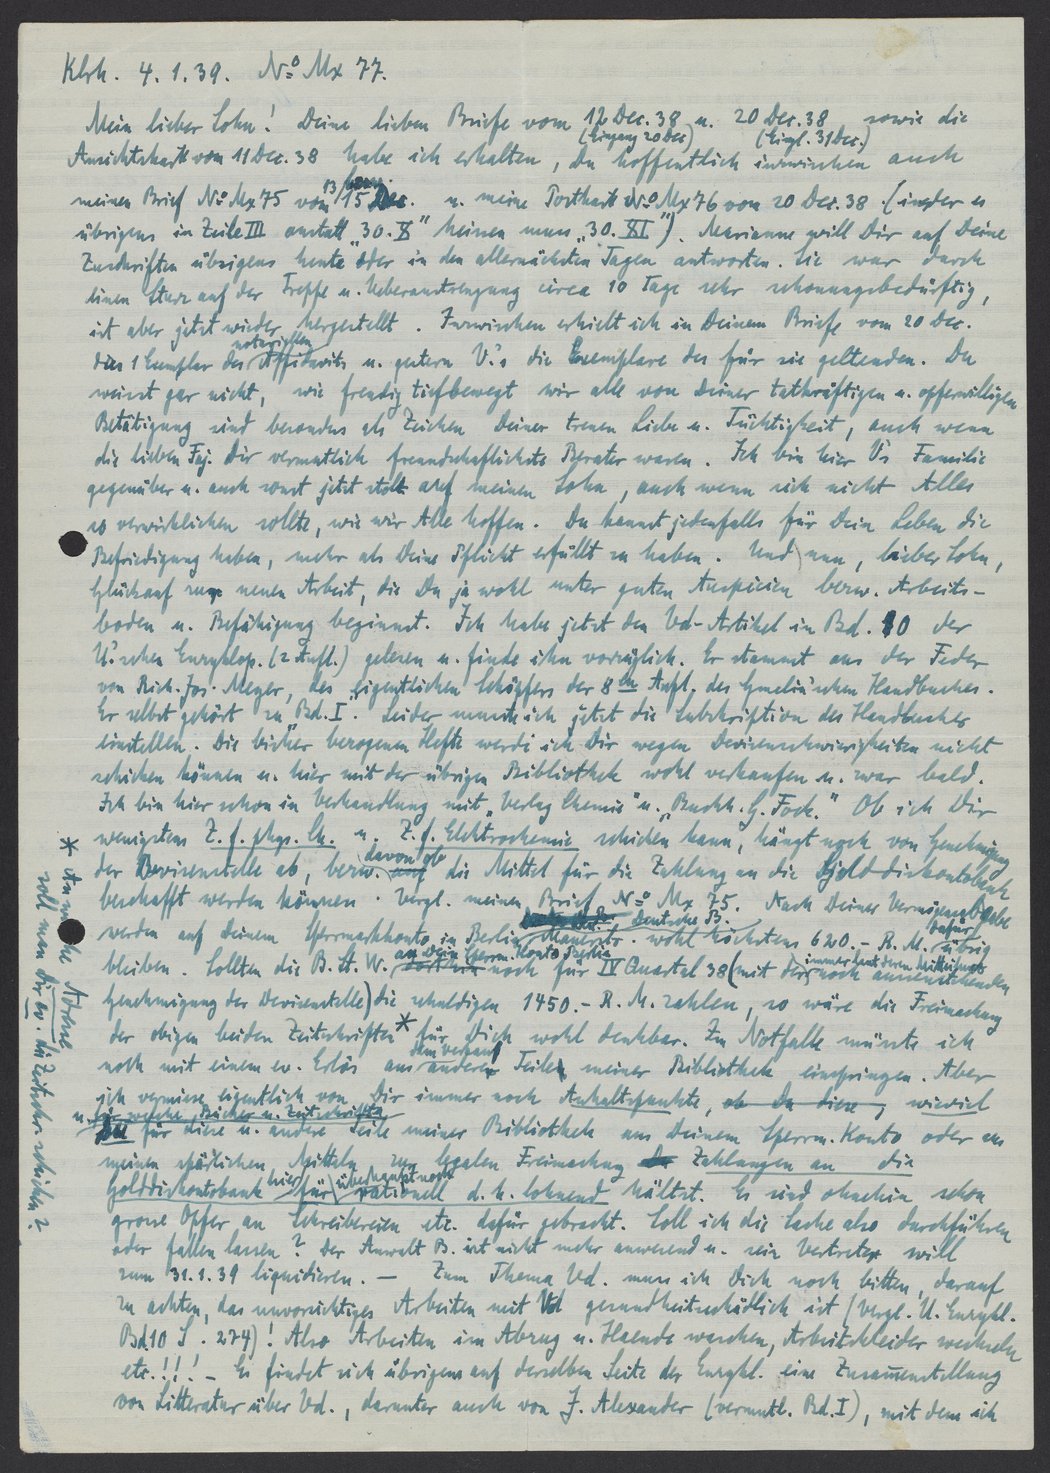 Klrh. 4.1.39. No Mx 77.
Mein lieber Sohn! Deine lieben Briefe vom 12 Dec. 38 u. 20 Dec. 38 sowie die
(Eingang 20 Dec) (Eingl. 31 Dec.)
Ansichtskart vom 11 Dec. 38 habe ich erhalten, Du hoffentlich inzwischen auch
13 bezw.
meinen Brief No Mx 75 vom 15 Dec. u. meine Postkart No Mx 76 vom 20 Dec. 38 (in der es
übrigens in Zeile III anstatt „30. X" heissen muss „30. XI"). Marianne will Dir auf Deine
Zuschriften übrigens heute oder in den allernächsten Tagen antworten. Sie war durch
einen Sturz auf der Treppe u. Ueberanstrengung circa 10 Tage sehr schonungsbedürftig,
ist aber jetzt wieder hergestellt. Inzwischen erhielt ich in Deinem Briefe vom 20 Dec.
notariellen
das 1 Exemplar des Affidavits u. gestern V.'s die Exemplare des für sie geltenden. Du
weisst gar nicht, wie freudig tiefbewegt wir alle von Deiner tatkräftigen u. opferwilligen
Betätigung sind besonders als Zeichen Deiner treuen Liebe u. Tüchtigkeit, auch wenn
die lieben Faj. Dir vermutlich freundschaftlichste Berater waren. Ich bin hier V's Familie
gegenüber u. auch sonst jetzt stolz auf meinen Sohn, auch wenn sich nicht Alles
so verwirklichen sollte, wie wir Alle hoffen. Du kannst jedenfalls für Dein Leben die
Befriedigung haben, mehr als Deine Pflicht erfüllt zu haben. Und nun, lieber Sohn,
Glückauf zur neuen Arbeit, die Du ja wohl unter guten Auspicien bezw. Arbeits-
boden u. Befähigung beginnst. Ich habe jetzt den Vd-Artikel in Bd. 10 der
U.'schen Enzyklop. (2 Aufl.) gelesen u. finde ihn vorzüglich. Er stammt aus der Feder
von Rich. Jos. Meyer, des eigentlichen Schöpfers der 8ten Aufl. des Gmelin'schen Handbuches.
Er selbst gehört zu „Bd. I". Leider musste ich jetzt die Subskription des Handbuches
einstellen. Die bisher bezogenen Hefte werde ich Dir wegen Devisenschwierigkeiten nicht
schicken können u. hier mit der übrigen Bibliothek wohl verkaufen u. zwar bald.
Ich bin hier schon in Verhandlung mit „Verlag Chemie" u. „Buchh. G. Fock." Ob ich Dir
wenigstens Z. f. phys. Ch. u. Z. f. Elektrochemie schicken kann, hängt noch von Genehmigung
davon ob
der Devisenstelle ab, bezw. auf die Mittel für die Zahlung an die Golddiskontobank
beschafft werden können. Vergl. meinen Brief No Mx 75. Nach Deiner Vermögensabgabe
Deutsche B. dafür
werden auf Deinem Sperrmarkkonto in Berlin Mauerstr. wohl höchstens 620.- R. M. übrig
an Dein Sperrm. Konto Berlin immer laut deren Mitteilung
bleiben. Sollten die B. St. W. dorthin noch für IV Quartal 38 (mit der noch ausstehenden
Genehmigung der Devisenstelle) die schuldigen 1450.- R. M. zahlen, so wäre die Freimachung
der obigen beiden Zeitschriften * für Dich wohl denkbar. Im Notfalle müsste ich
dem Verkauf
noch mit einem ev. Erlös aus anderen Teilen meiner Bibliothek einspringen. Aber
ich vermisse eigentlich von Dir immer noch Anhaltspunkte, ob Du diese, wieviel
u. für welche Bücher u. Zeitschriften
Du für diese u. andere Teile meiner Bibliothek aus Deinem Sperrm. Konto oder aus
meinen spärlichen Mitteln zur legalen Freimachung Zahlungen an die
hier überhaupt noch
Golddiskontobank für rationell d. h. lohnend hältst. Es sind ohnehin schon
grosse Opfer an Schreibereien etc. dafür gebracht. Soll ich die Sache also durchführen
oder fallen lassen? Der Anwalt B. ist nicht mehr anwesend u. sein Vertreter will
zum 31.1.39 liquidieren. — Zum Thema Vd. muss ich Dich noch bitten, darauf
zu achten, das unvorsichtiges Arbeiten mit Vd gesundheitsschädlich ist (Vergl. U. Enzykl.
Bd 10 S. 274)! Also Arbeiten im Abzug u. Haende waschen, Arbeitskleider wechseln
etc.!!! — Es findet sich übrigens auf derselben Seite der Enzykl. eine Zusammenstellung
von Litteratur über Vd., darunter auch von J. Alexander (vermutl. Bd. I), mit dem ich
* An welche Adresse
soll man Dir ev. die Zeitschr. schicken?